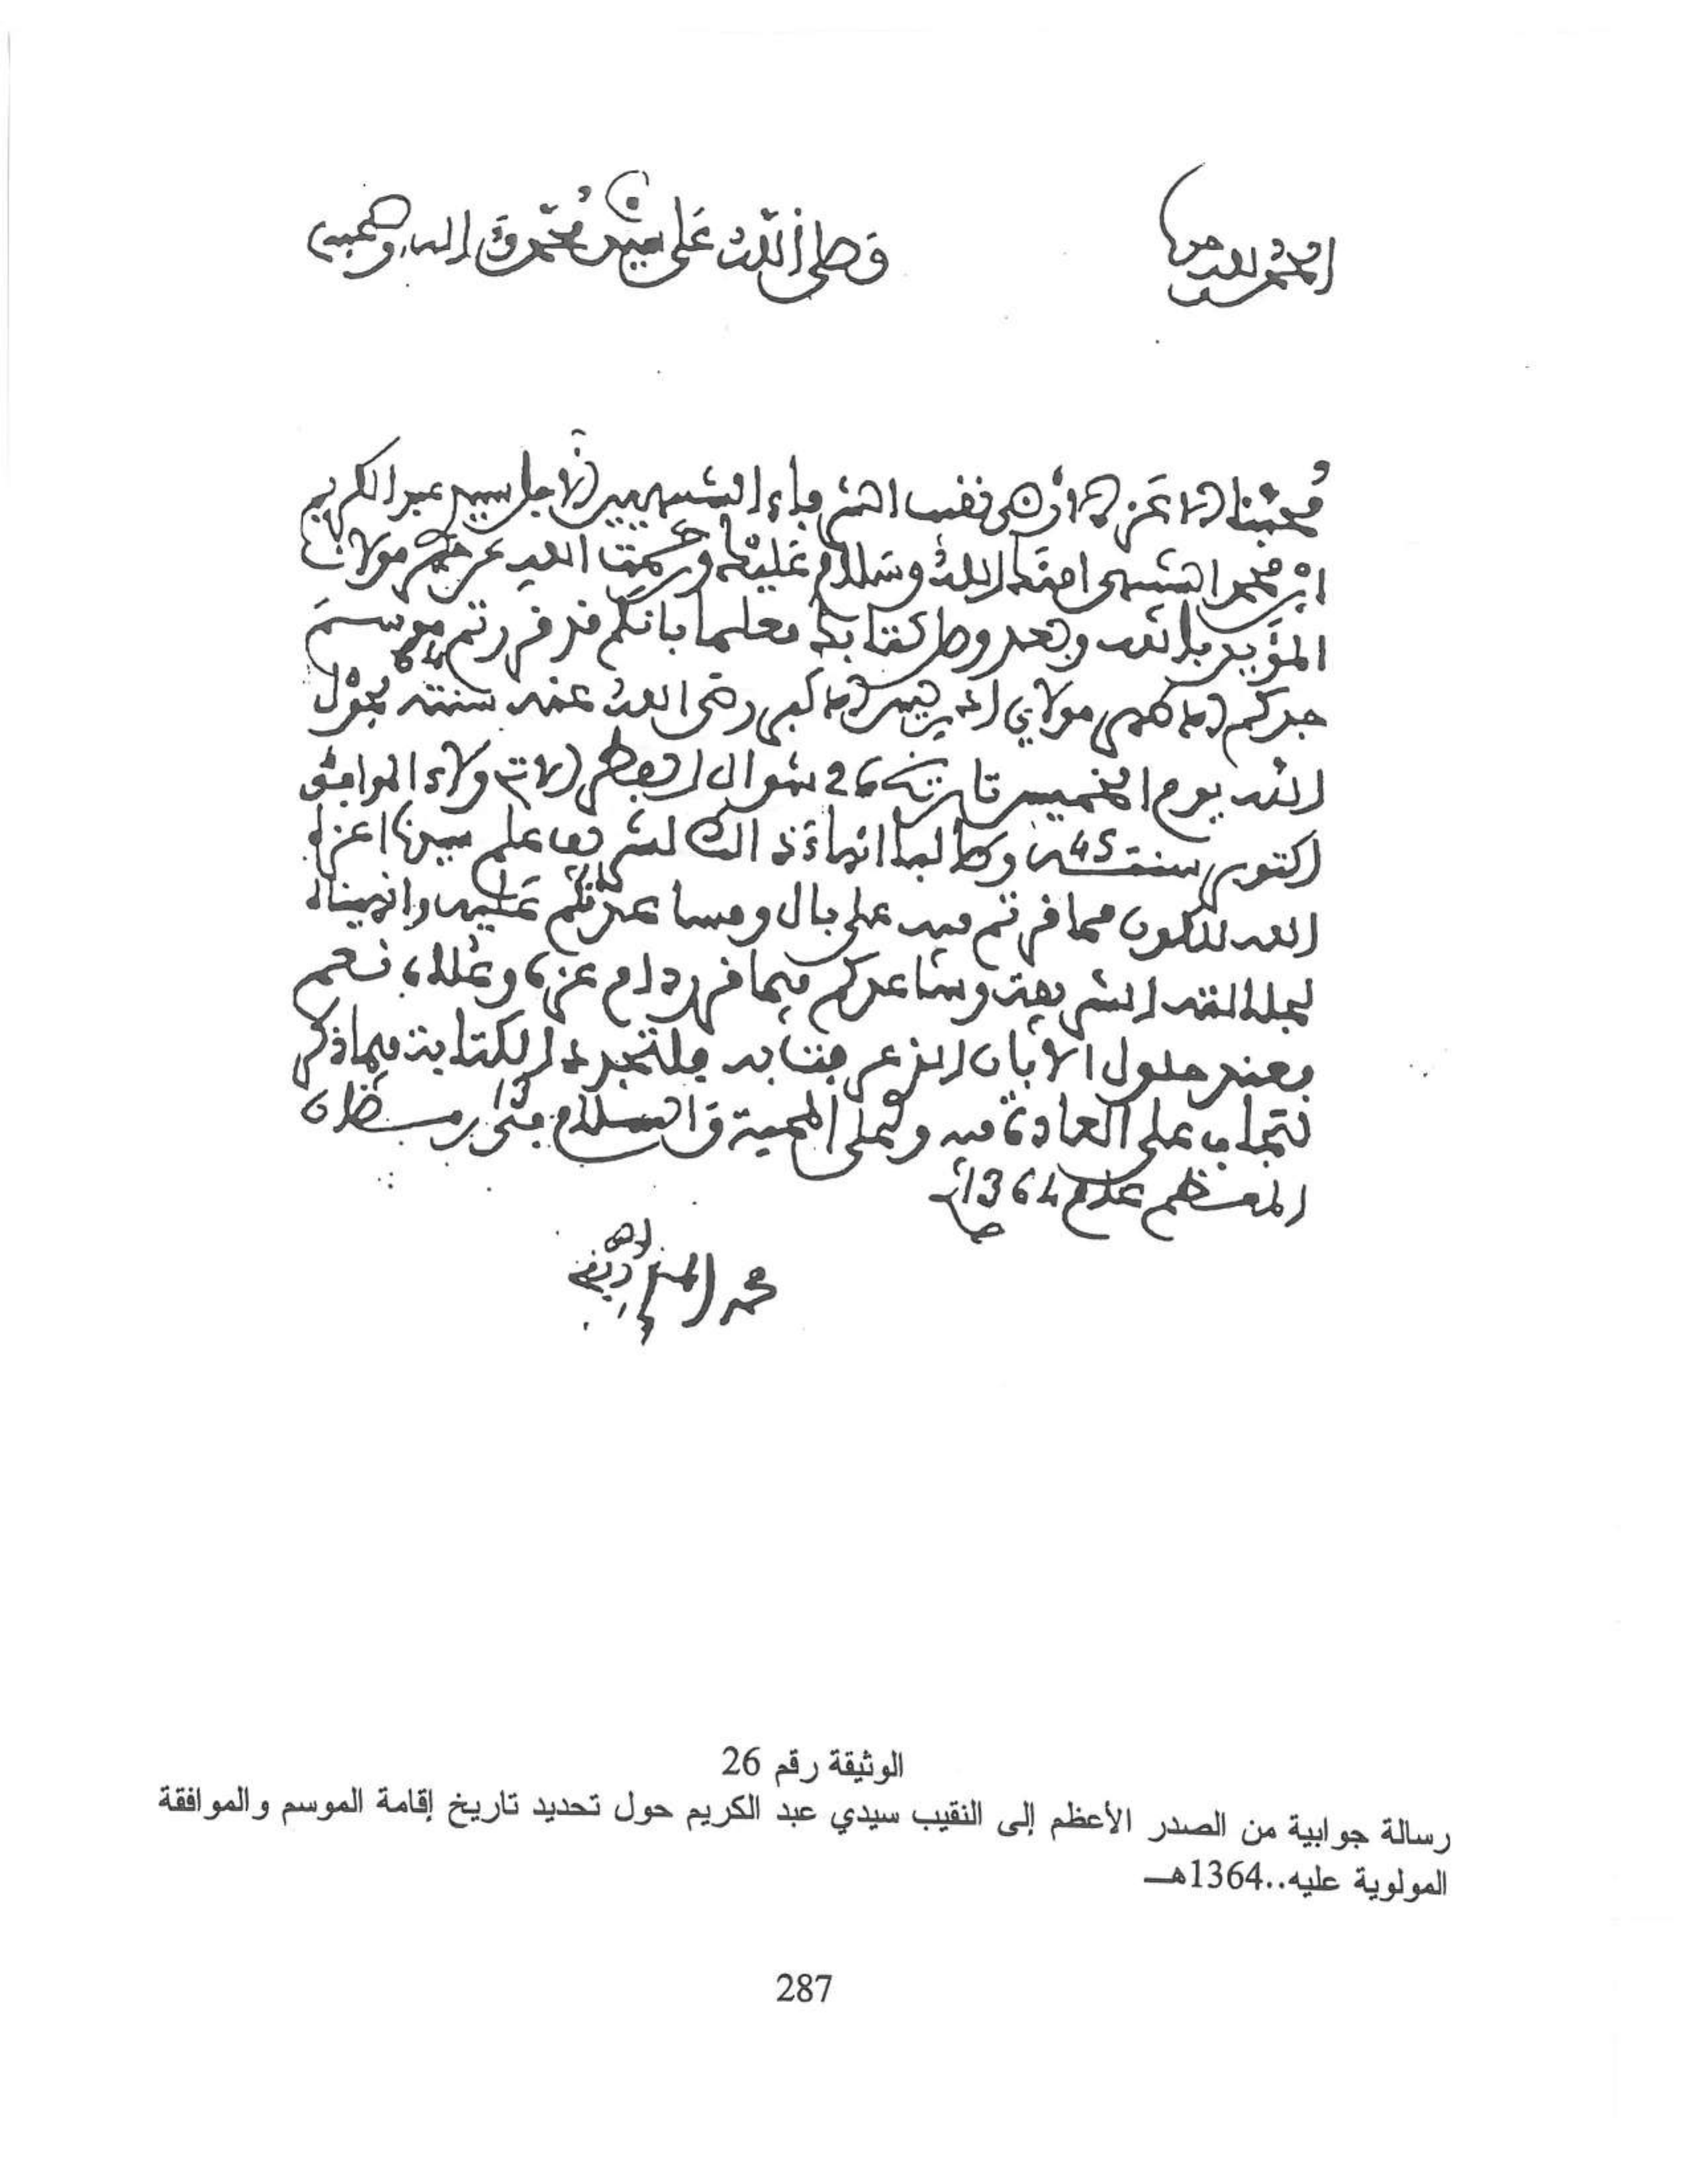 الحمد لله وحده
وصلى الله على سيدنا محمد وءاله وصحبه
محبنا الاعز الارضى نقيب الشرفاء الشبيهيين الاجل سيدي عبد الكريم
ابن محمد الشبيهي امنك الله وسلام عليك ورحمت الله عن خير مولانا
المؤيد بالله وبعد وصل كتابك معلما بانكم قد قررتم موسم
جدكم الاطهر مولاي ادريس الاكبر رضي الله عنه سنته بحول
الله يوم الخميس تاريخ 26 شوال الاتي ولاء الموافق
اكتوبر سنة 45 وطالبا انهاء ذالك لشريف علم سيدنا اعزه
الله ليكون مما قررتم فيه على بال ومساعدتكم عليه وانهيناه
لجلالته الشريفة وساعدكم فيما قرر دام عزه وعلاه نعم
وعند حلول الابان الذي عرفنا به فلتجدد الكتابة فيما ذكر
لتجاب على العادة فيه وعلى المحبة والسلام في رمضان
المعظم عام 1364
محمد المقري
الوثيقة رقم 26
رسالة جوابية من الصدر الأعظم إلى النقيب سيدي عبد الكريم حول تحديد تاريخ إقامة الموسم والموافقة
المولوية عليه..1364هـ
287